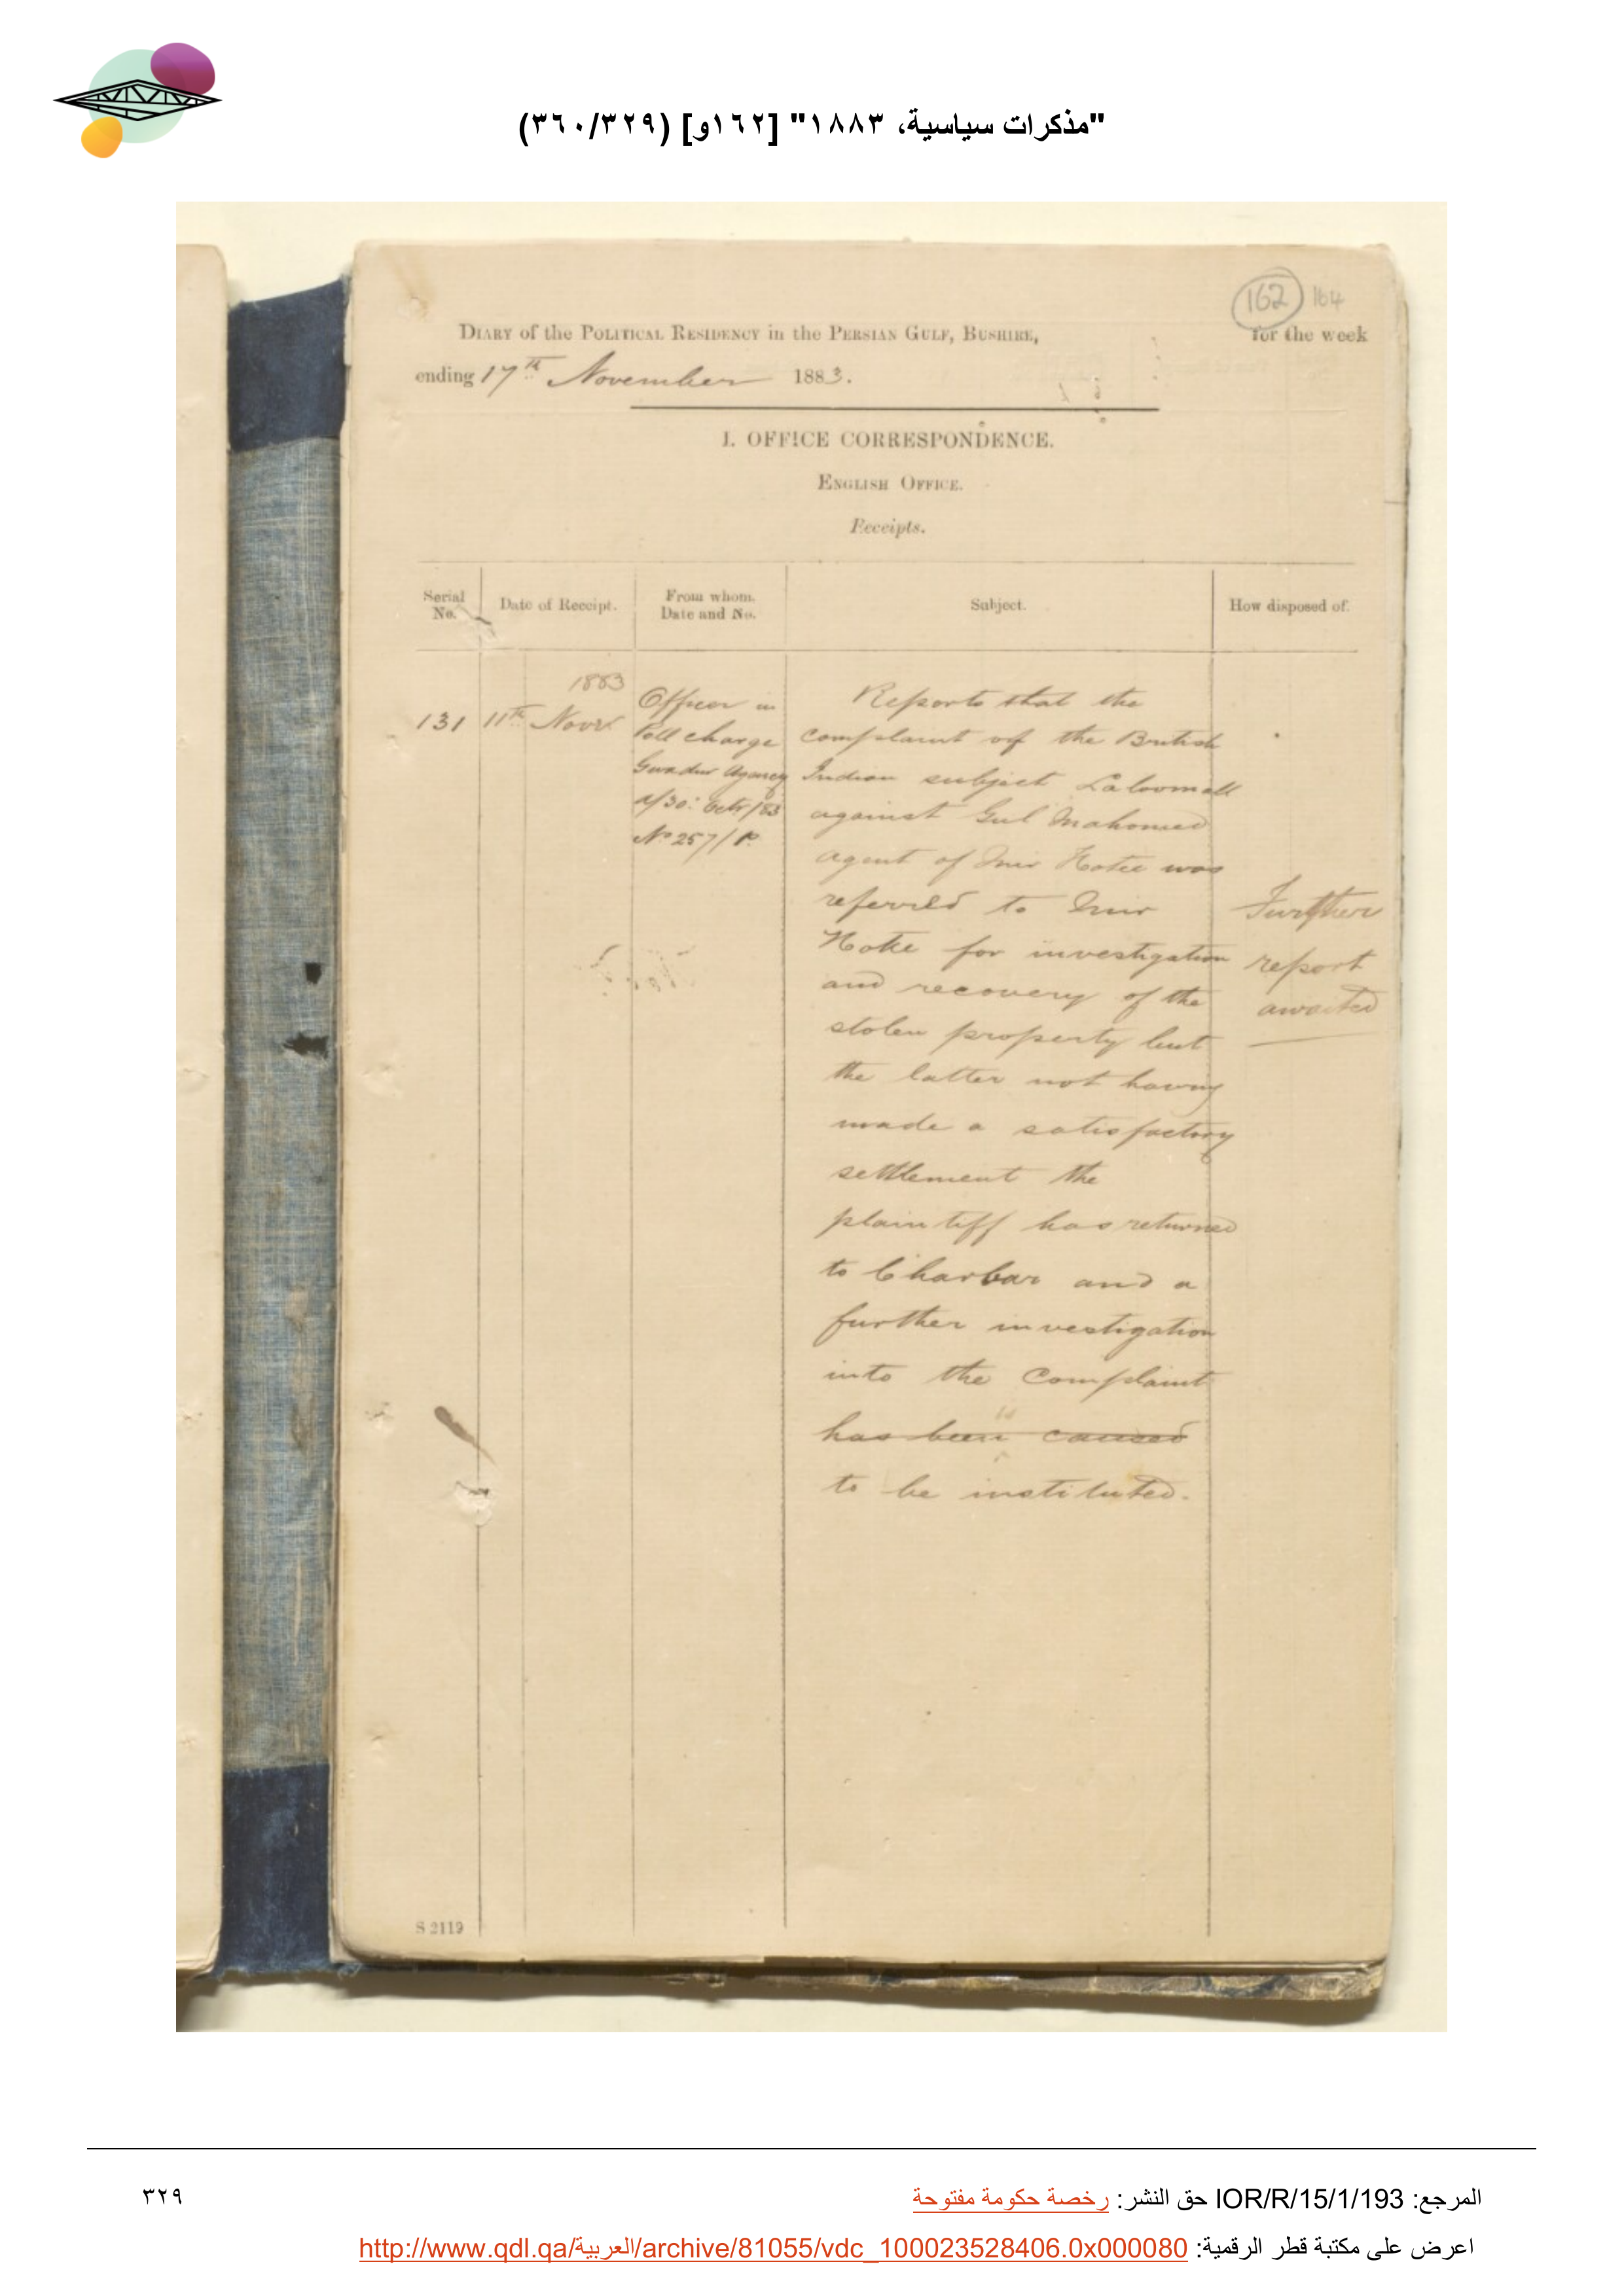 "مذكرات سياسية، ١٨٨٣" [١٦٢و] (٣٦٠/٣٢٩)
162 164
DIARY of the POLITICAL RESIDENCY in the PERSIAN GULF, BUSHIRE, for the week
ending 17th November 1883.
I. OFFICE CORRESPONDENCE.
ENGLISH OFFICE.
Receipts.
Serial No.
Date of Receipt.
From whom. Date and No.
Subject.
How disposed of.
131
1883
11th Novr
Officer in
Poll charge
Gwadur Agency
d/30: Octr/83
No 257/P.
Reports that the
complaint of the British
Indian subject Laloomall
against Gul Mahomed
agent of Mir Hotie was
referred to Mir
Hotie for investigation
and recovery of the
stolen property but
the latter not having
made a satisfactory
settlement the
plaintiff has returned
to Charbar and a
further investigation
into the Complaint
has been caused
is
to be instituted.
Further
report
awaited
S 2119
المرجع: IOR/R/15/1/193 حق النشر: رخصة حكومة مفتوحة
٣٢٩
اعرض على مكتبة قطر الرقمية: http://www.qdl.qa/العربية/archive/81055/vdc_100023528406.0x000080